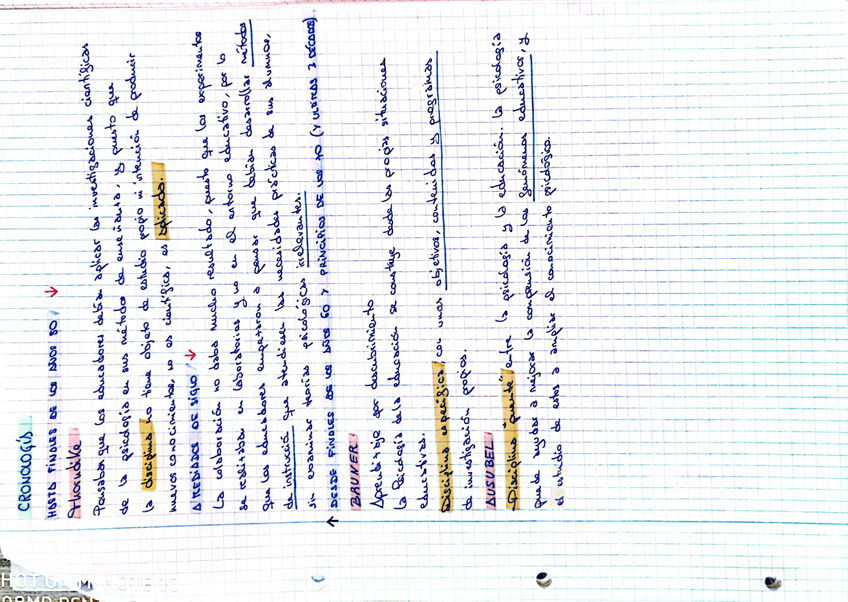 CRONOLOGÍA
HASTA FINALES DE LOS AÑOS 50 / ↓
Thorndike
Pensaba que los educadores debían aplicar las investigaciones científicas
de la psicología en sus métodos de enseñanza, y puesto que
la disciplina no tiene objeto de estudio propio ni intención de producir
nuevos conocimientos, no es científica, es aplicada.
A MEDIADOS DE SIGLO / ↓
La colaboración no daba mucho resultado, puesto que los experimentos
se realizaban en laboratorios y no en el entorno educativo, por lo
que los educadores empezaron a pensar que debían desarrollar métodos
de instrucción que atendiesen las necesidades prácticas de sus alumnos,
sin examinar teorías psicológicas irrelevantes.
↑ DESDE FINALES DE LOS AÑOS 60 Y PRINCIPIOS DE LOS 70 (Y ULTIMAS 3 DÉCADAS)
BRUNER
Aprendizaje por descubrimiento
La Psicología de la educación se construye desde las propias situaciones
educativas.
Disciplina específica, con unos objetivos, contenidos y programas
de investigación propios.
AUSUBEL
Disciplina "puente" entre la psicología y la educación. La psicología
puede ayudar a mejorar la comprensión de los fenómenos educativos, y
el estudio de estos a ampliar el conocimiento psicológico.